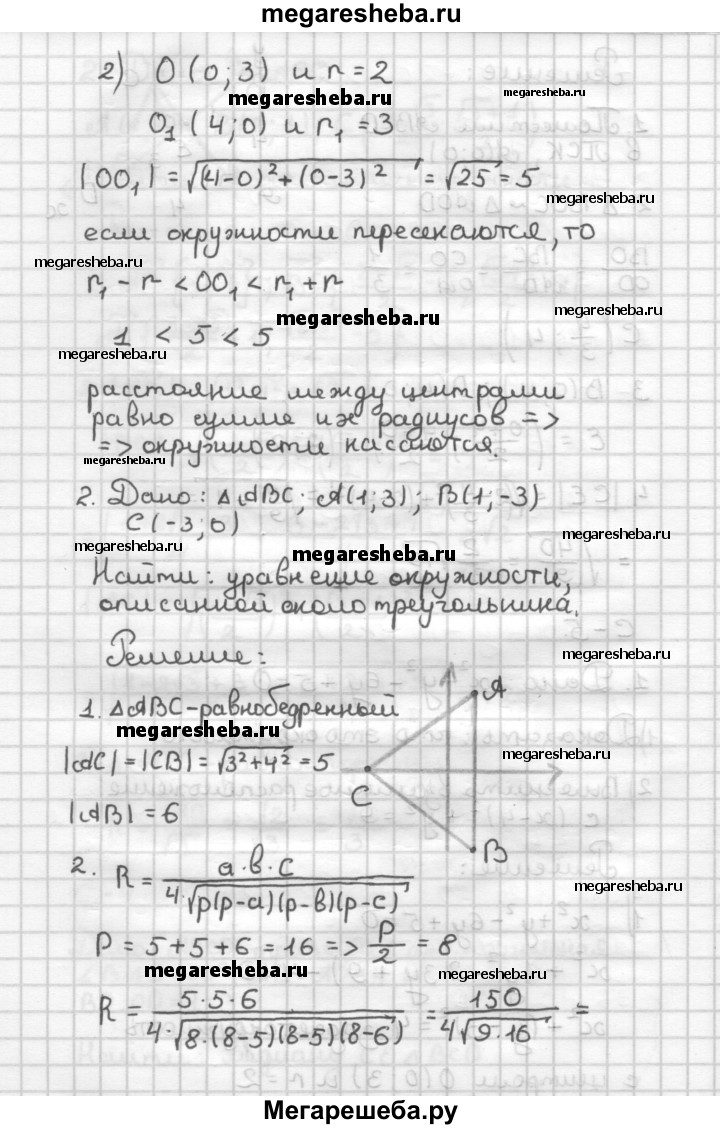 megaresheba.ru
2) O (0; 3) и r = 2
megaresheba.ru
megaresheba.ru
O₁ (4; 0) и r₁ = 3
|OO₁| = √((4-0)² + (0-3)²) = √25 = 5
megaresheba.ru
если окружности пересекаются, то
megaresheba.ru
r₁ - r < OO₁ < r₁ + r
megaresheba.ru
megaresheba.ru
1 < 5 < 5
megaresheba.ru
расстояние между центрами
равно сумме их радиусов =>
=> окружности касаются.
megaresheba.ru
2. Дано: △ABC; A(1; 3); B(1; -3)
C(-3; 0)
megaresheba.ru
megaresheba.ru
megaresheba.ru
Найти: уравнение окружности,
описанной около треугольника.
Решение:
megaresheba.ru
A
1. △ABC - равнобедренный
megaresheba.ru
|AC| = |CB| = √(3² + 4²) = 5
megaresheba.ru
C
|AB| = 6
B
2. R = a·в·c / 4·√(p(p-a)(p-в)(p-c))
megaresheba.ru
P = 5 + 5 + 6 = 16 => P/2 = 8
megaresheba.ru
megaresheba.ru
R = 5·5·6 / 4·√(8·(8-5)(8-5)(8-6)) = 150 / 4√(9·16) =
Мегарешеба.ру